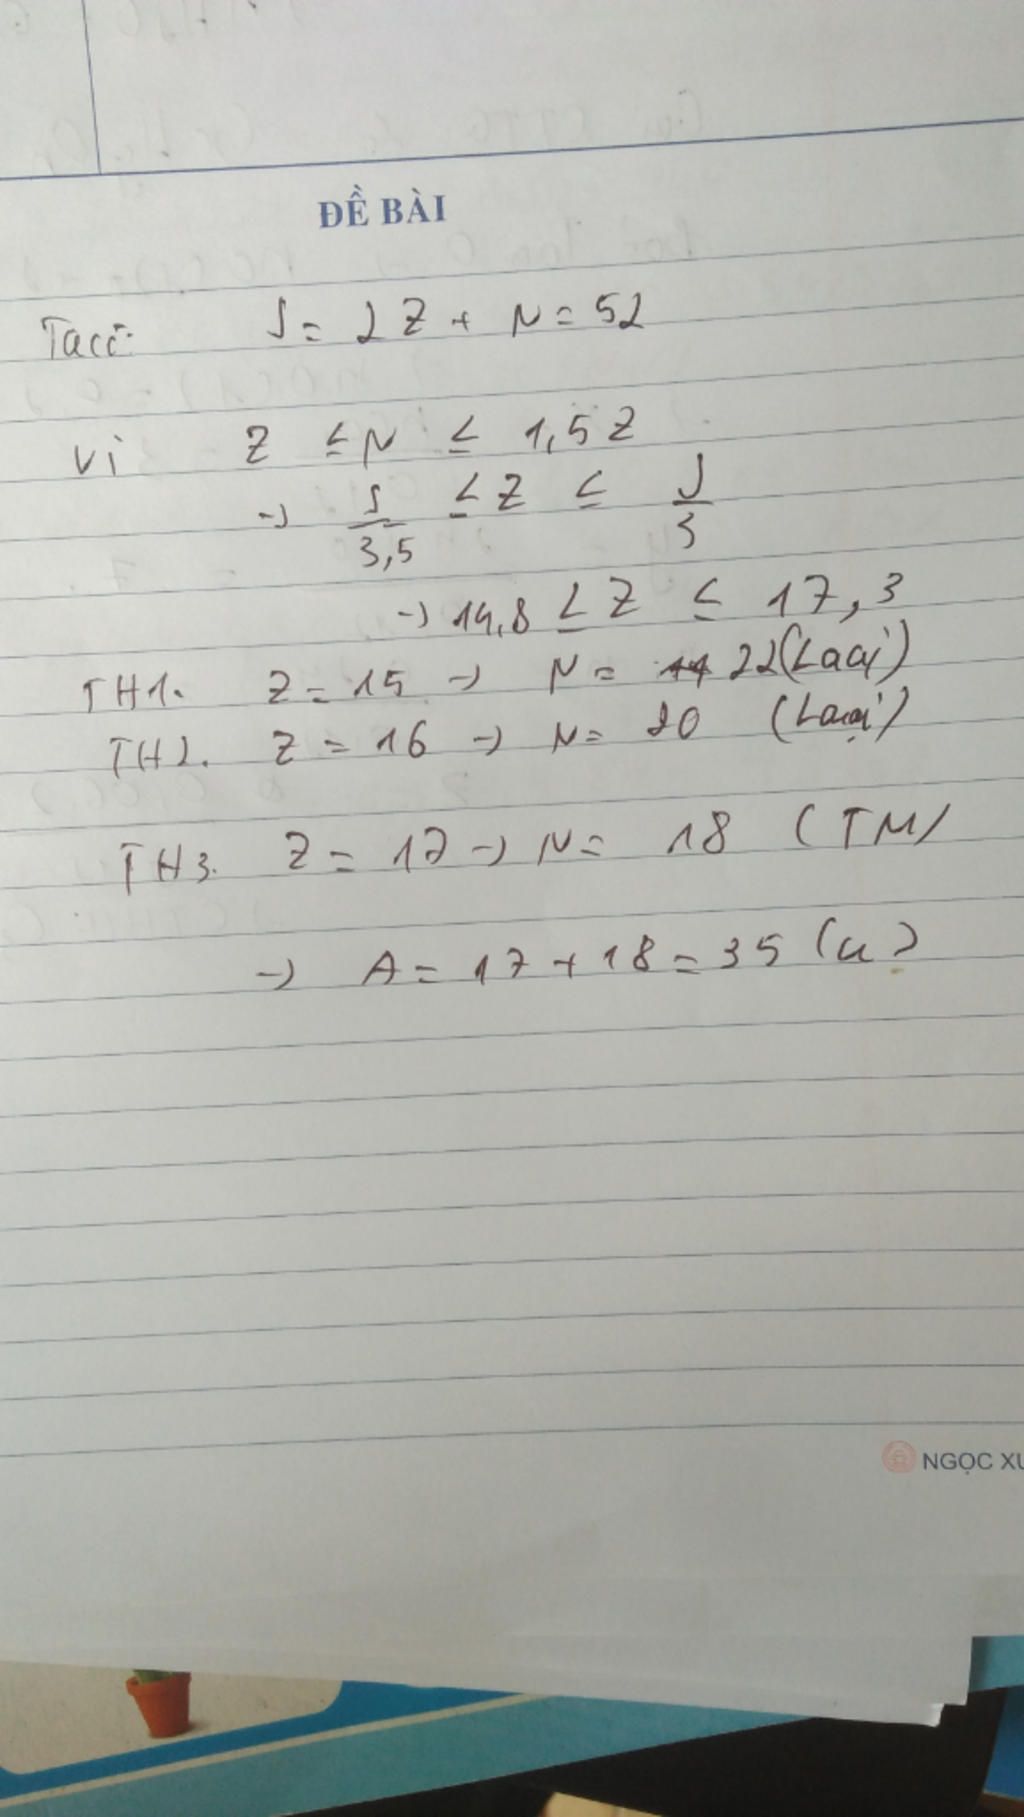 ĐỀ BÀI
Ta có: S = 2Z + N = 52
Vì Z ≤ N ≤ 1,5Z
→ S/3,5 ≤ Z ≤ S/3
→ 14,8 ≤ Z ≤ 17,3
TH1. Z = 15 → N = 22 (Loại)
TH2. Z = 16 → N = 20 (Loại)
TH3. Z = 17 → N = 18 (TM)
→ A = 17 + 18 = 35 (u)
NGỌC